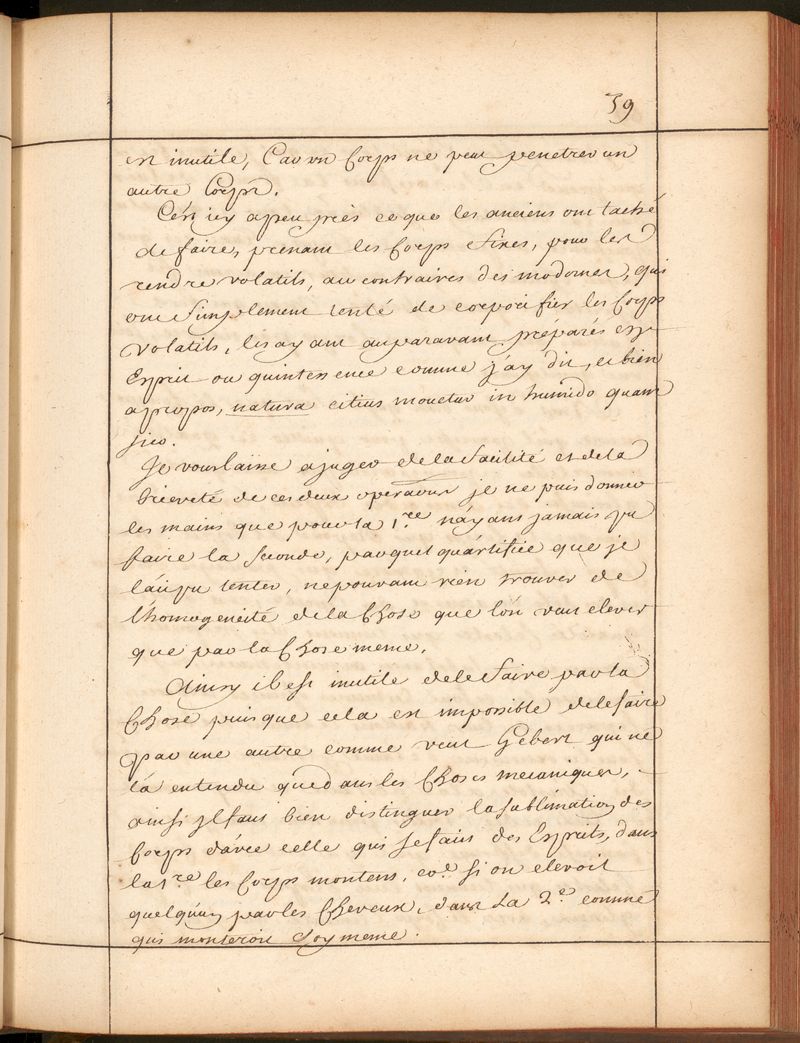 39
est inutile, Car vn Corps ne peut penetrer un
autre Corps.
C'est icy apeu près ce que les anciens ont taché
de faire, prenant les Corps fixes, pour les
rendre volatils, au contraires des modernes, qui
ont simplement tenté de corporifier les Corps
volatils, les ayant auparavant preparés en
Esprit ou quintessence comme j'ay dit, et bien
apropos, natura citius mouetur in humido quam
sico.
Je vous laisse ajuger de la facilité et de la
brieveté de ces deux operaons je ne puis donner
les mains que pour la 1.re n'ayant jamais pu
faire la seconde, par quel qu'artifice que je
l'aie pu tenter, ne pouvant rien trouver de
l'homogeneité de la Chose que l'on veut elever
que par la Chose meme.
Ainsy il est inutile de le faire par la
Chose puis que cela est impossible de le faire
par une autre comme veut Geber qui ne
l'a entendu que dans les Choses mecaniques,
ainsi il faut bien distinguer la sublimation des
Corps d'avec celle qui se fait des Esprits, dans
la 1.re les Corps montent, co.e si on elevoit
quelqu'un par les Cheveux, dans La 2.e comme
qui monteroit soy meme.